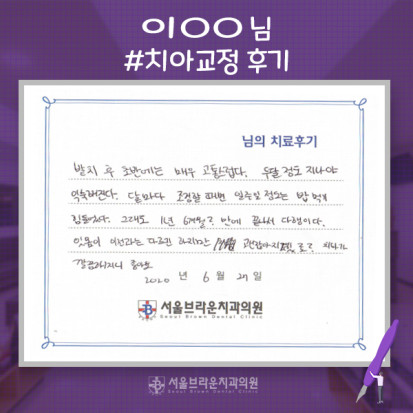 이○○님
#치아교정 후기
님의 치료후기
발치 후 초반에는 매우 고통스럽다. 두달 정도 지나야
익숙해진다. 달마다 조정할 때면 일주일 정도는 밥 먹기
힘들었다. 그래도 1년 6개월 만에 끝나서 다행이다.
잇몸이 이전과는 다르긴 하지만
깔끔해지니 좋아요
2020 년 6 월 29 일
서울브라운치과의원
Seoul Brown Dental Clinic
서울브라운치과의원
Seoul Brown Dental Clinic